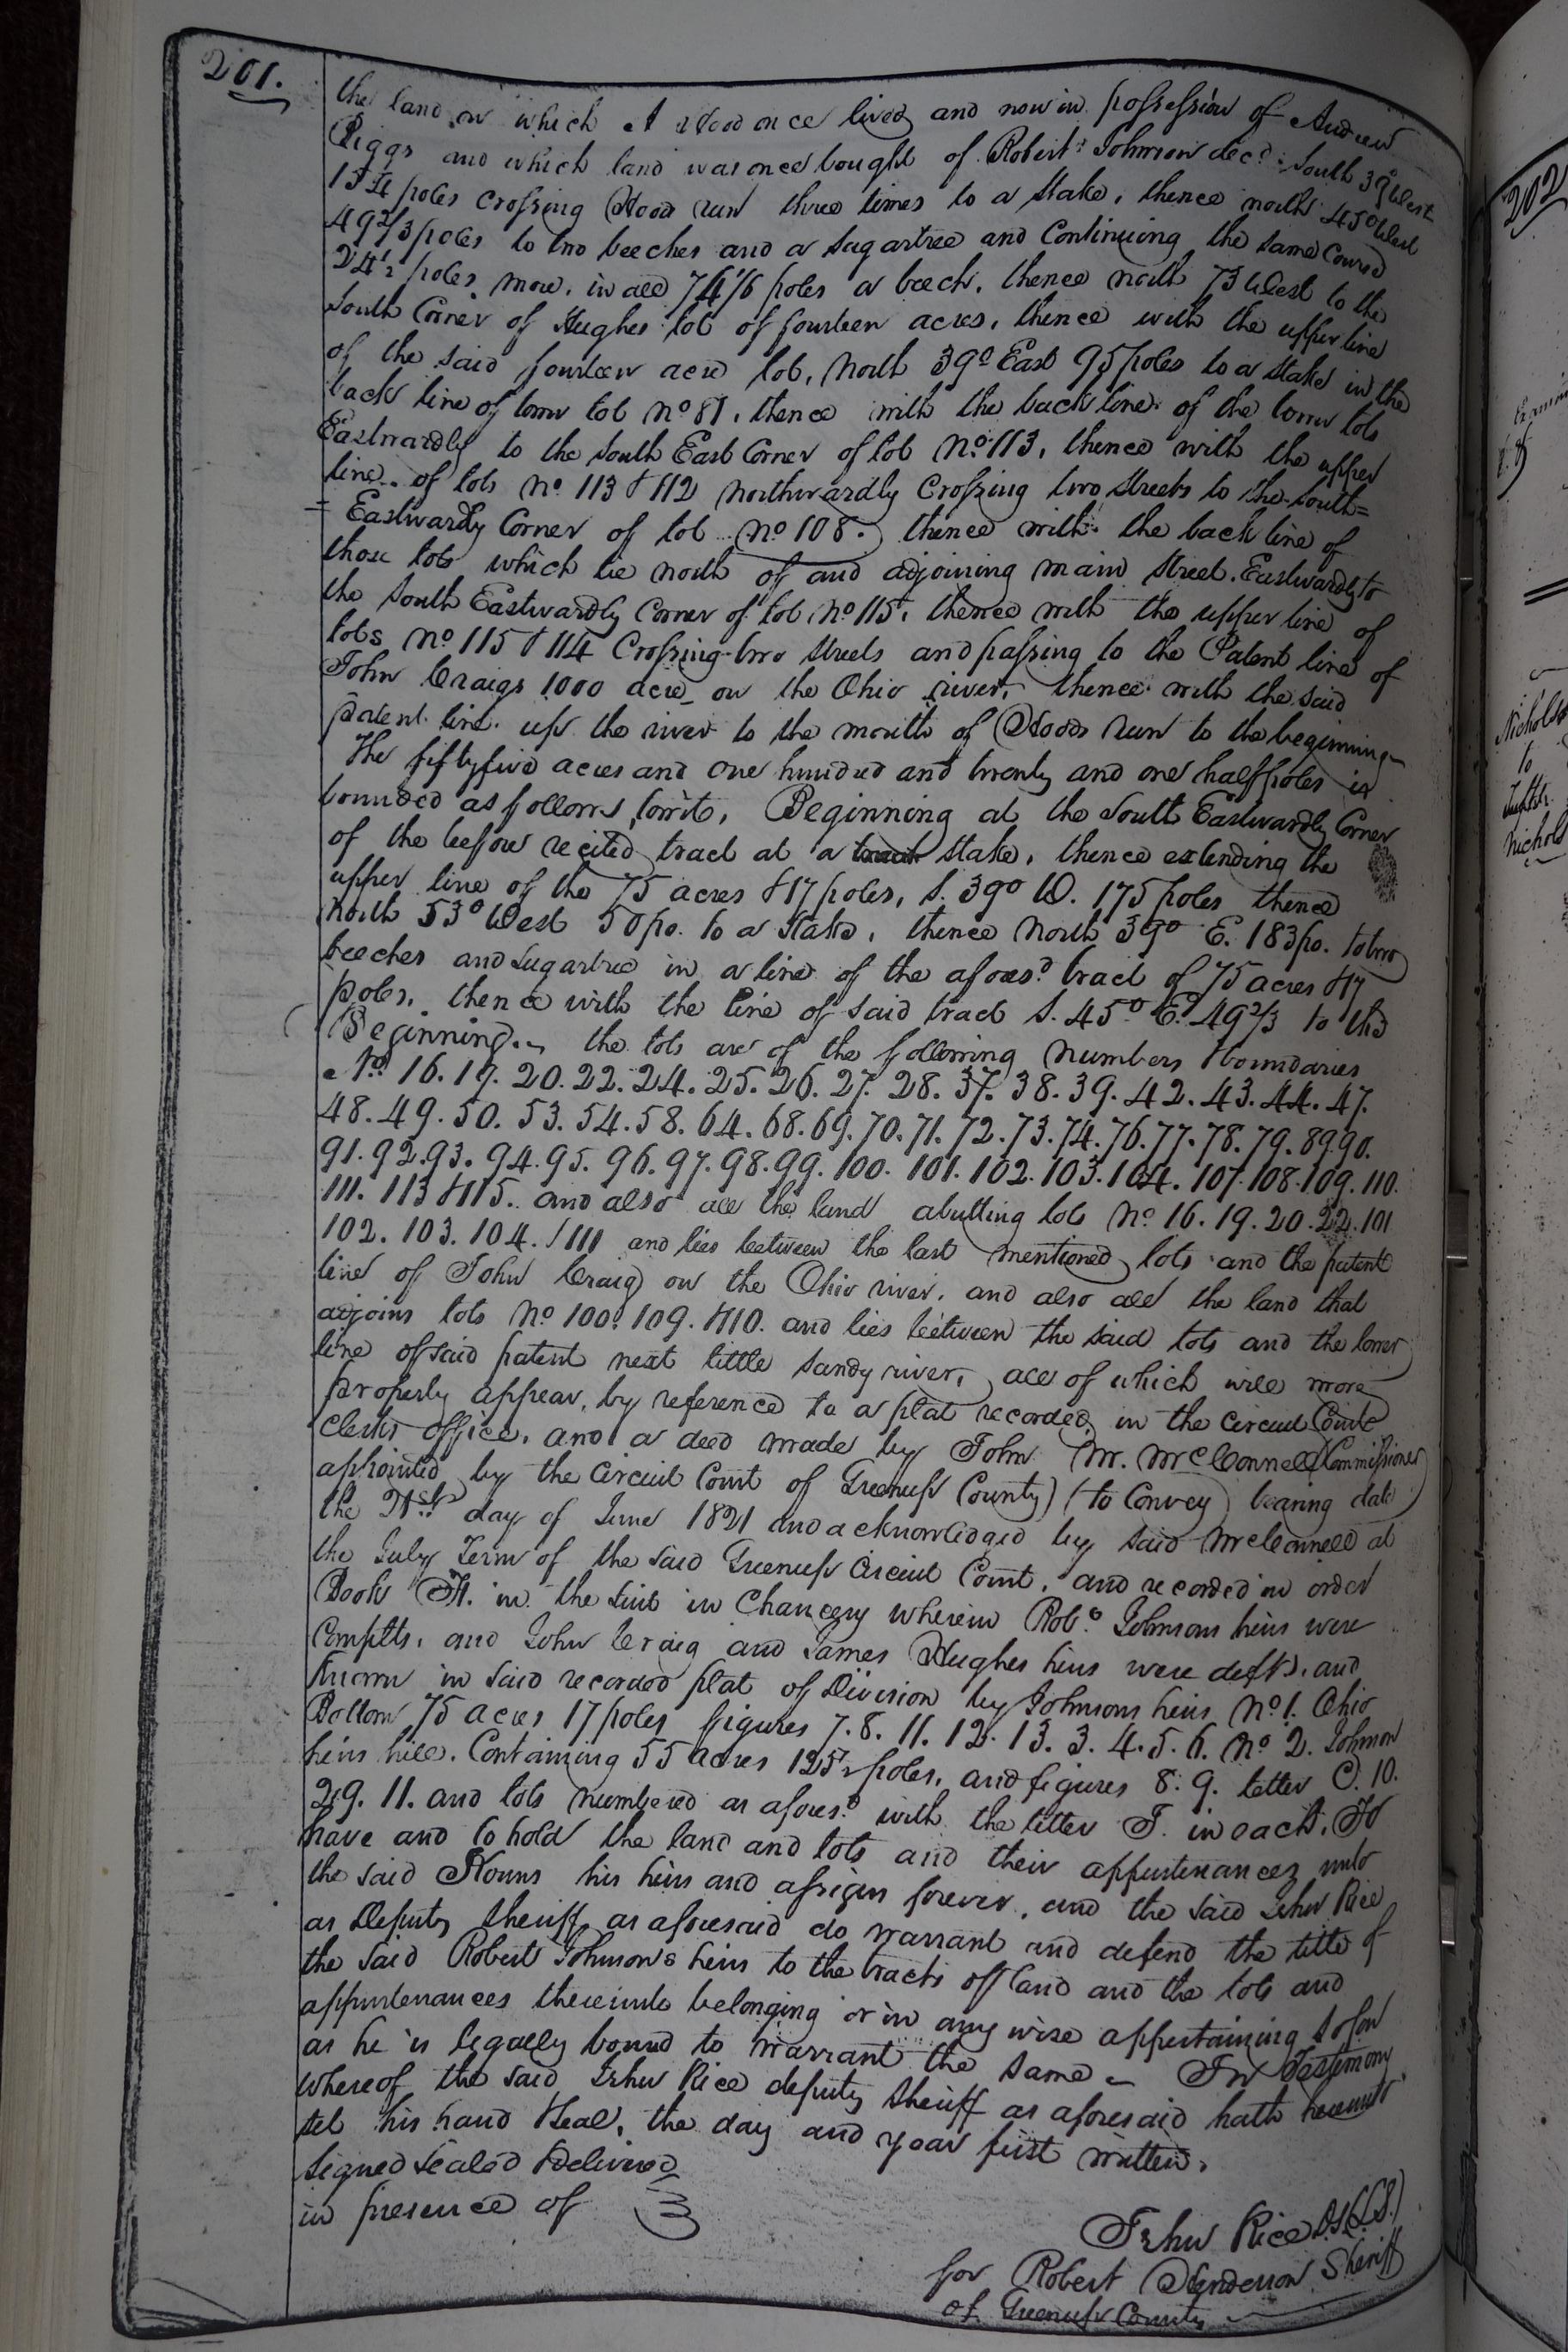 201.
the land on which A Wood once lived and now in possession of Andrew
Riggs and which land was once bought of Robert Johnson decd. South 39° West
134 poles crossing Woods run three times to a stake, thence north 45° West
49 2/3 poles to two beeches and a sugartree and continuing the same course
24 1/2 poles more, in all 74 1/6 poles a beech, thence north 73 West to the
South Corner of Hughes lot of fourteen acres, thence with the upper line
of the said fourteen acre lot, North 39° East 95 poles to a stake in the
back line of town lot No 81, thence with the back line of the town lots
Eastwardly to the South East Corner of lot No. 113, thence with the upper
line of lots No 113 & 112 northwardly Crossing two streets to the South=
=Eastwardly Corner of lot No 108. thence with the back line of
those lots which lie north of and adjoining main Street. Eastwardly to
the South Eastwardly Corner of lot No 115, thence with the upper line of
lots No 115 & 114 Crossing two streets and passing to the Patent line of
John Craigs 1000 acre on the Ohio river, thence with the said
patent line up the river to the mouth of Woods run to the beginning
The fiftyfive acres and one hundred and twenty and one half poles is
bounded as follows, towit, Beginning at the South Eastwardly Corner
of the before recited tract at a stake, thence extending the
upper line of the 75 acres & 17 poles, S. 39° W. 175 poles thence
North 53° West 50 po. to a stake, thence North 39° E. 183 po. to two
beeches and sugartree in a line of the aforesd. tract of 75 acres & 17
poles, thence with the line of said tract S. 45° E. 49 2/3 to the
Beginning. the lots are of the following numbers & boundaries
No 16. 19. 20. 22. 24. 25. 26. 27. 28. 37. 38. 39. 42. 43. 44. 47.
48. 49. 50. 53. 54. 58. 64. 68. 69. 70. 71. 72. 73. 74. 76. 77. 78. 79. 89 90.
91. 92. 93. 94. 95. 96. 97. 98. 99. 100. 101. 102. 103. 104. 107. 108. 109. 110.
111. 113 & 115. and also all the land abutting lots No 16. 19. 20. 22. 101
102. 103. 104. & 111 and lies between the last mentioned lots and the patent
line of John Craig on the Ohio river. and also all the land that
adjoins lots No 100. 109. & 110. and lies between the said lots and the lower
line of said patent next little Sandy river, all of which will more
properly appear, by reference to a plat recorded in the Circuit Court
Clerks office. and a deed made by John M. McConnell (Commissioner
appointed by the Circuit Court of Greenup County) (to Convey) bearing date
the 21st day of June 1821 and acknowledged by said McConnell at
the July Term of the said Greenup Circuit Court, and recorded in order
Book in the suit in Chancery wherein Robt Johnsons heirs were
Complts. and John Craig and James Hughes heirs were defts. and
known in said recorded plat of Division by Johnsons heirs No 1. Ohio
Bottom 75 acres 17 poles figures 7. 8. 11. 12. 13. 3. 4. 5. 6. No 2. Johnson
heirs hill. Containing 55 acres poles, and figures 8. 9. letter C. 10.
29. 11. and lots numbered as aforesd. with the letter J. in each. To
have and to hold the land and lots and their appurtenances unto
the said Nouns his heirs and assigns forever, and the said John Rice
as Deputy Sheriff as aforesaid do warrant and defend the title of
the said Robert Johnsons heirs to the tracts of land and the lots and
appurtenances thereunto belonging or in any wise appertaining so far
as he is legally bound to warrant the same In Testimony
whereof the said John Rice deputy Sheriff as aforesaid hath hereunto
set his hand & seal, the day and year first written.
Signed sealed & delivered
in presence of
John Rice D.S. (L.S.)
for Robert Henderson Sheriff
of Greenup County
202
Nicholas
to
Nichols